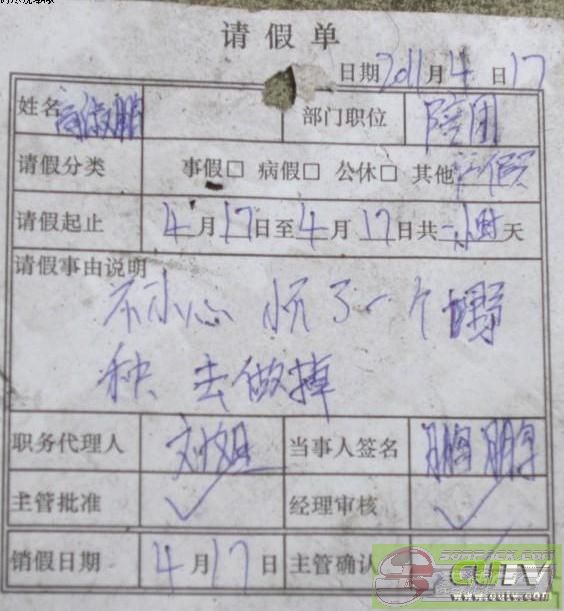 请假单
日期 2011月4日17
姓名 部门职位 陪团
请假分类 事假□ 病假□ 公休□ 其他
请假起止 4月17日至4月17日共一小时天
请假事由说明
不小心 怀了一个孽
种 去做掉
职务代理人 当事人签名 鹏鹏
主管批准 ✓ 经理审核 ✓
销假日期 4月17日 主管确认
CUTV
www.cutv.com